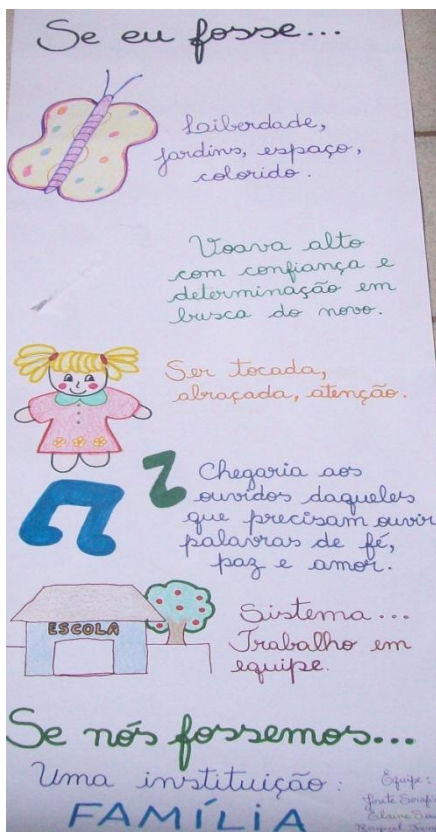 Se eu fosse...
Liberdade,
jardins, espaço,
colorido.
Voava alto
com confiança e
determinação em
busca do novo.
Ser tocada,
abraçada, atenção.
Chegaria aos
ouvidos daqueles
que precisam ouvir
palavras de fé,
paz e amor.
ESCOLA
Sistema...
Trabalho em
equipe.
Se nós fossemos...
Uma instituição:
FAMÍLIA
Equipe:
Elaine